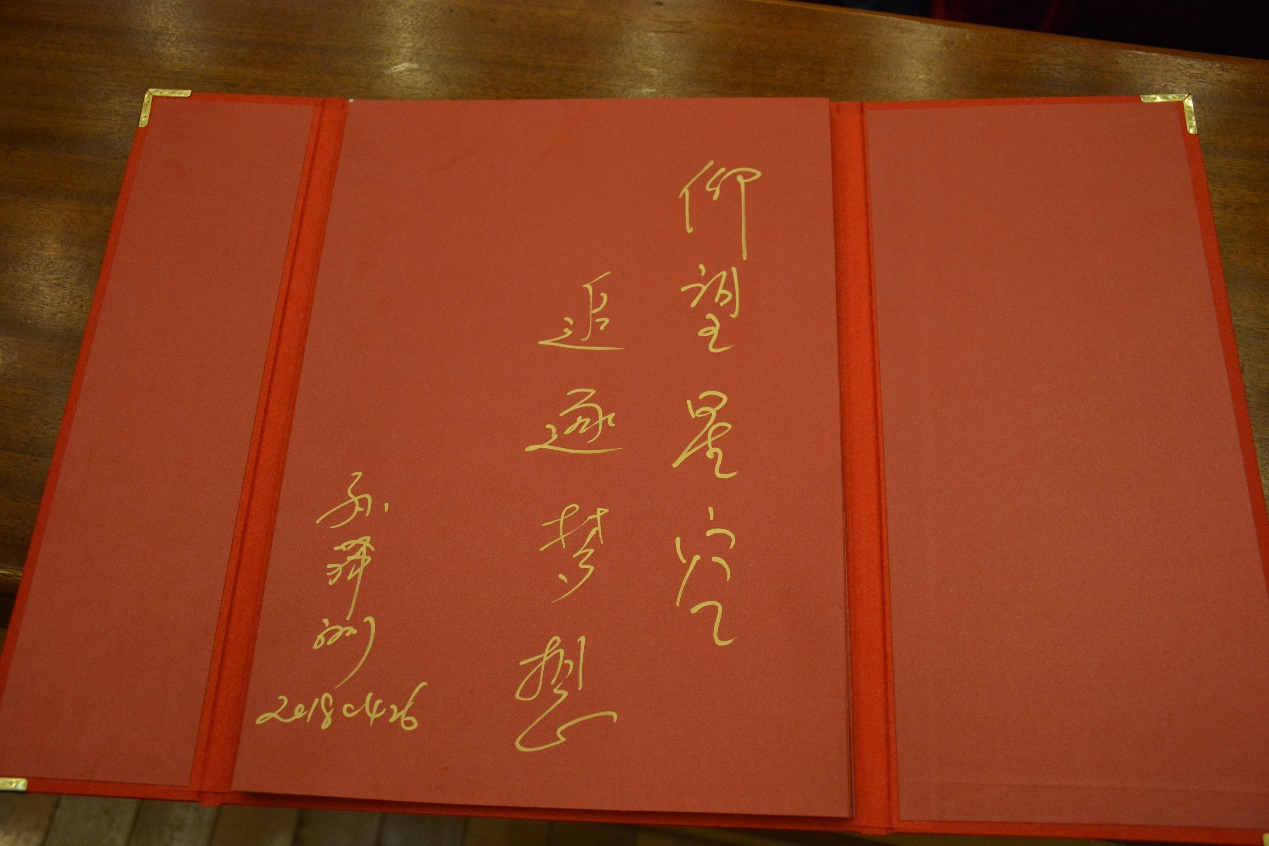 仰望星空
追逐梦想
孙泽洲
20180426